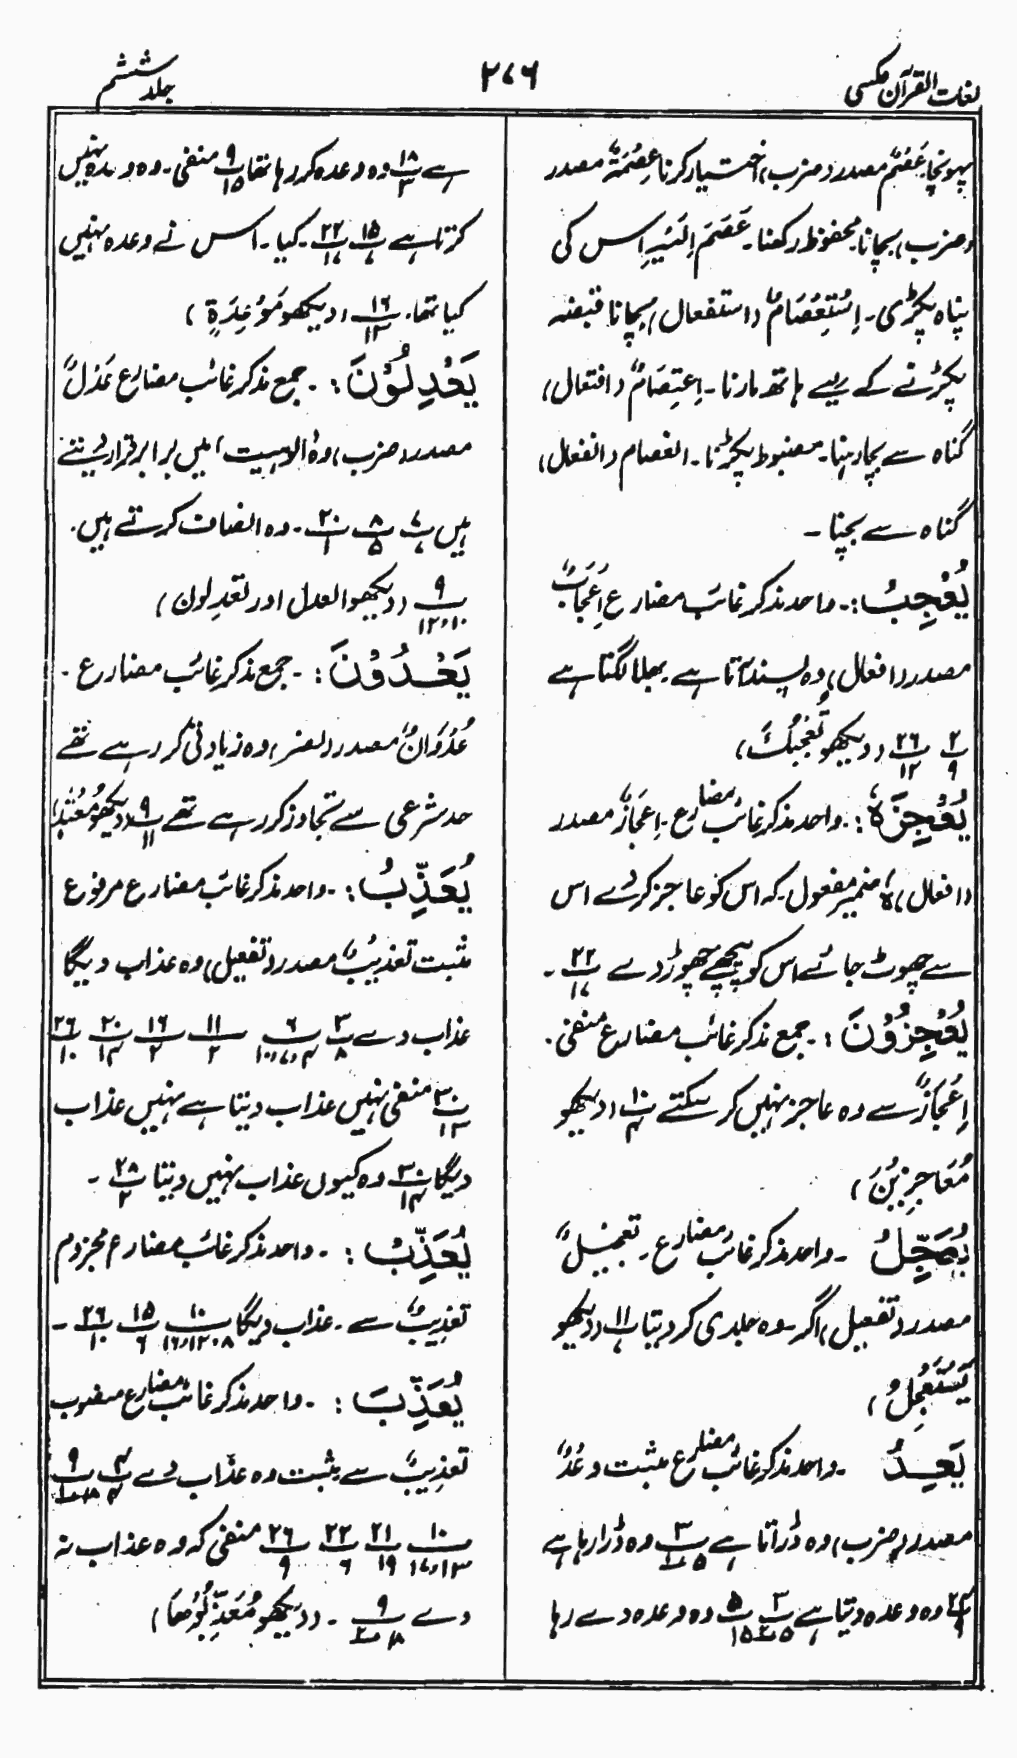 لغات القرآن مکسی
۲۷۶
جلد ششم
پہونچا۔ عَصْمٌ مصدر (ضرب) اختیار کرنا عِصْمَةٌ مصدر
(ضرب) بچانا محفوظ رکھنا۔ عَصَمَ اِلَیْہِ اس کی
پناہ پکڑی۔ اِسْتِعْصَامٌ (استفعال) بچانا قبضہ
پکڑنے کے لیے ہاتھ مارنا۔ اِعْتِصَامٌ (افتعال)
گناہ سے بچا رہنا۔ مضبوط پکڑنا۔ انعصام (انفعال)
گناہ سے بچنا۔
یُعْجِبُ:۔ واحد مذکر غائب مضارع اِعْجَابٌ
مصدر (افعال) وہ پسند آتا ہے۔ بھلا لگتا ہے
۲/۹ ۲۶/۱۲ (دیکھو تُعْجِبُكَ)
یُعْجِزَهٗ:۔ واحد مذکر غائب مضارع۔ اِعْجَازٌ مصدر
(افعال) ہٗ ضمیر مفعول۔ کہ اس کو عاجز کردے اس
سے چھوٹ جائے اس کو پیچھے چھوڑ دے ۲۲/۱۷۔
یُعْجِزُوْنَ:۔ جمع مذکر غائب مضارع منفی۔
اِعْجَازٌ سے وہ عاجز نہیں کر سکتے ۱۰/۴ (دیکھو
مُعَاجِزِیْنَ)
یُعَجِّلُ۔ واحد مذکر غائب مضارع۔ تعجیلٌ
مصدر (تفعیل) اگر۔ وہ جلدی کر دیتا ۱۱/۷ (دیکھو
یَسْتَعْجِلُ)
یَعِدُ۔ واحد مذکر غائب مضارع مثبت وَعْدٌ
مصدر (ضرب) وہ ڈراتا ہے ۳/۵ وہ ڈرا رہا ہے
وہ وعدہ دیتا ہے ۳/۵ ۵/۱۵ وہ وعدہ دے رہا
ہے ۱۸/۳ وہ وعدہ کر رہا تھا ۹/۱۵ منفی۔ وہ وعدہ نہیں
کرتا ہے ۱۵/۷ ۲۲/۱۷۔ کیا۔ اس نے وعدہ نہیں
کیا تھا۔ ۱۶/۱۳ (دیکھو مَوْعِدَةٍ)
یَعْدِلُوْنَ:۔ جمع مذکر غائب مضارع عَدْلٌ
مصدر (ضرب) وہ (الوہیت) میں برابر قرار دیتے
ہیں ۷/۷ ۸/۵ ۲۰/۱۔ وہ انصاف کرتے ہیں۔
۹/۱۲،۱۰ (دیکھو العدل اور تعدلون)
یَعْدُوْنَ:۔ جمع مذکر غائب مضارع۔
عُدْوَانٌ مصدر (نصر) وہ زیادتی کر رہے تھے
حد شرعی سے تجاوز کر رہے تھے ۹/۱۱ (دیکھو مُعْتَدٍ)
یُعَذِّبُ:۔ واحد مذکر غائب مضارع مرفوع
مثبت تعذیبٌ مصدر (تفعیل) وہ عذاب دیگا
عذاب دے ۳/۸ ۶/۱۰،۷،۴ ۱۱/۲ ۱۶/۲ ۲۰/۱۴ ۲۶/۱۰
۳۰/۱۳ منفی نہیں عذاب دیتا ہے نہیں عذاب
دیگا ۳۰/۱۴ وہ کیوں عذاب نہیں دیتا ۲۸/۲۔
یُعَذِّبْ:۔ واحد مذکر غائب مضارع مجزوم
تعذیبٌ سے۔ عذاب دیگا ۱۰/۱۶،۱۲،۸ ۱۵/۶ ۲۶/۱۰۔
یُعَذِّبَ:۔ واحد مذکر غائب مضارع منصوب
تعذیبٌ سے مثبت وہ عذاب دے ۴/۴ ۹/۱۸
۱۰/۱۷،۱۳ ۲۱/۱۹ ۲۲/۶ ۲۶/۹ منفی کہ وہ عذاب نہ
دے ۹/۱۸۔ (دیکھو مُعَذِّبُوْھَا)